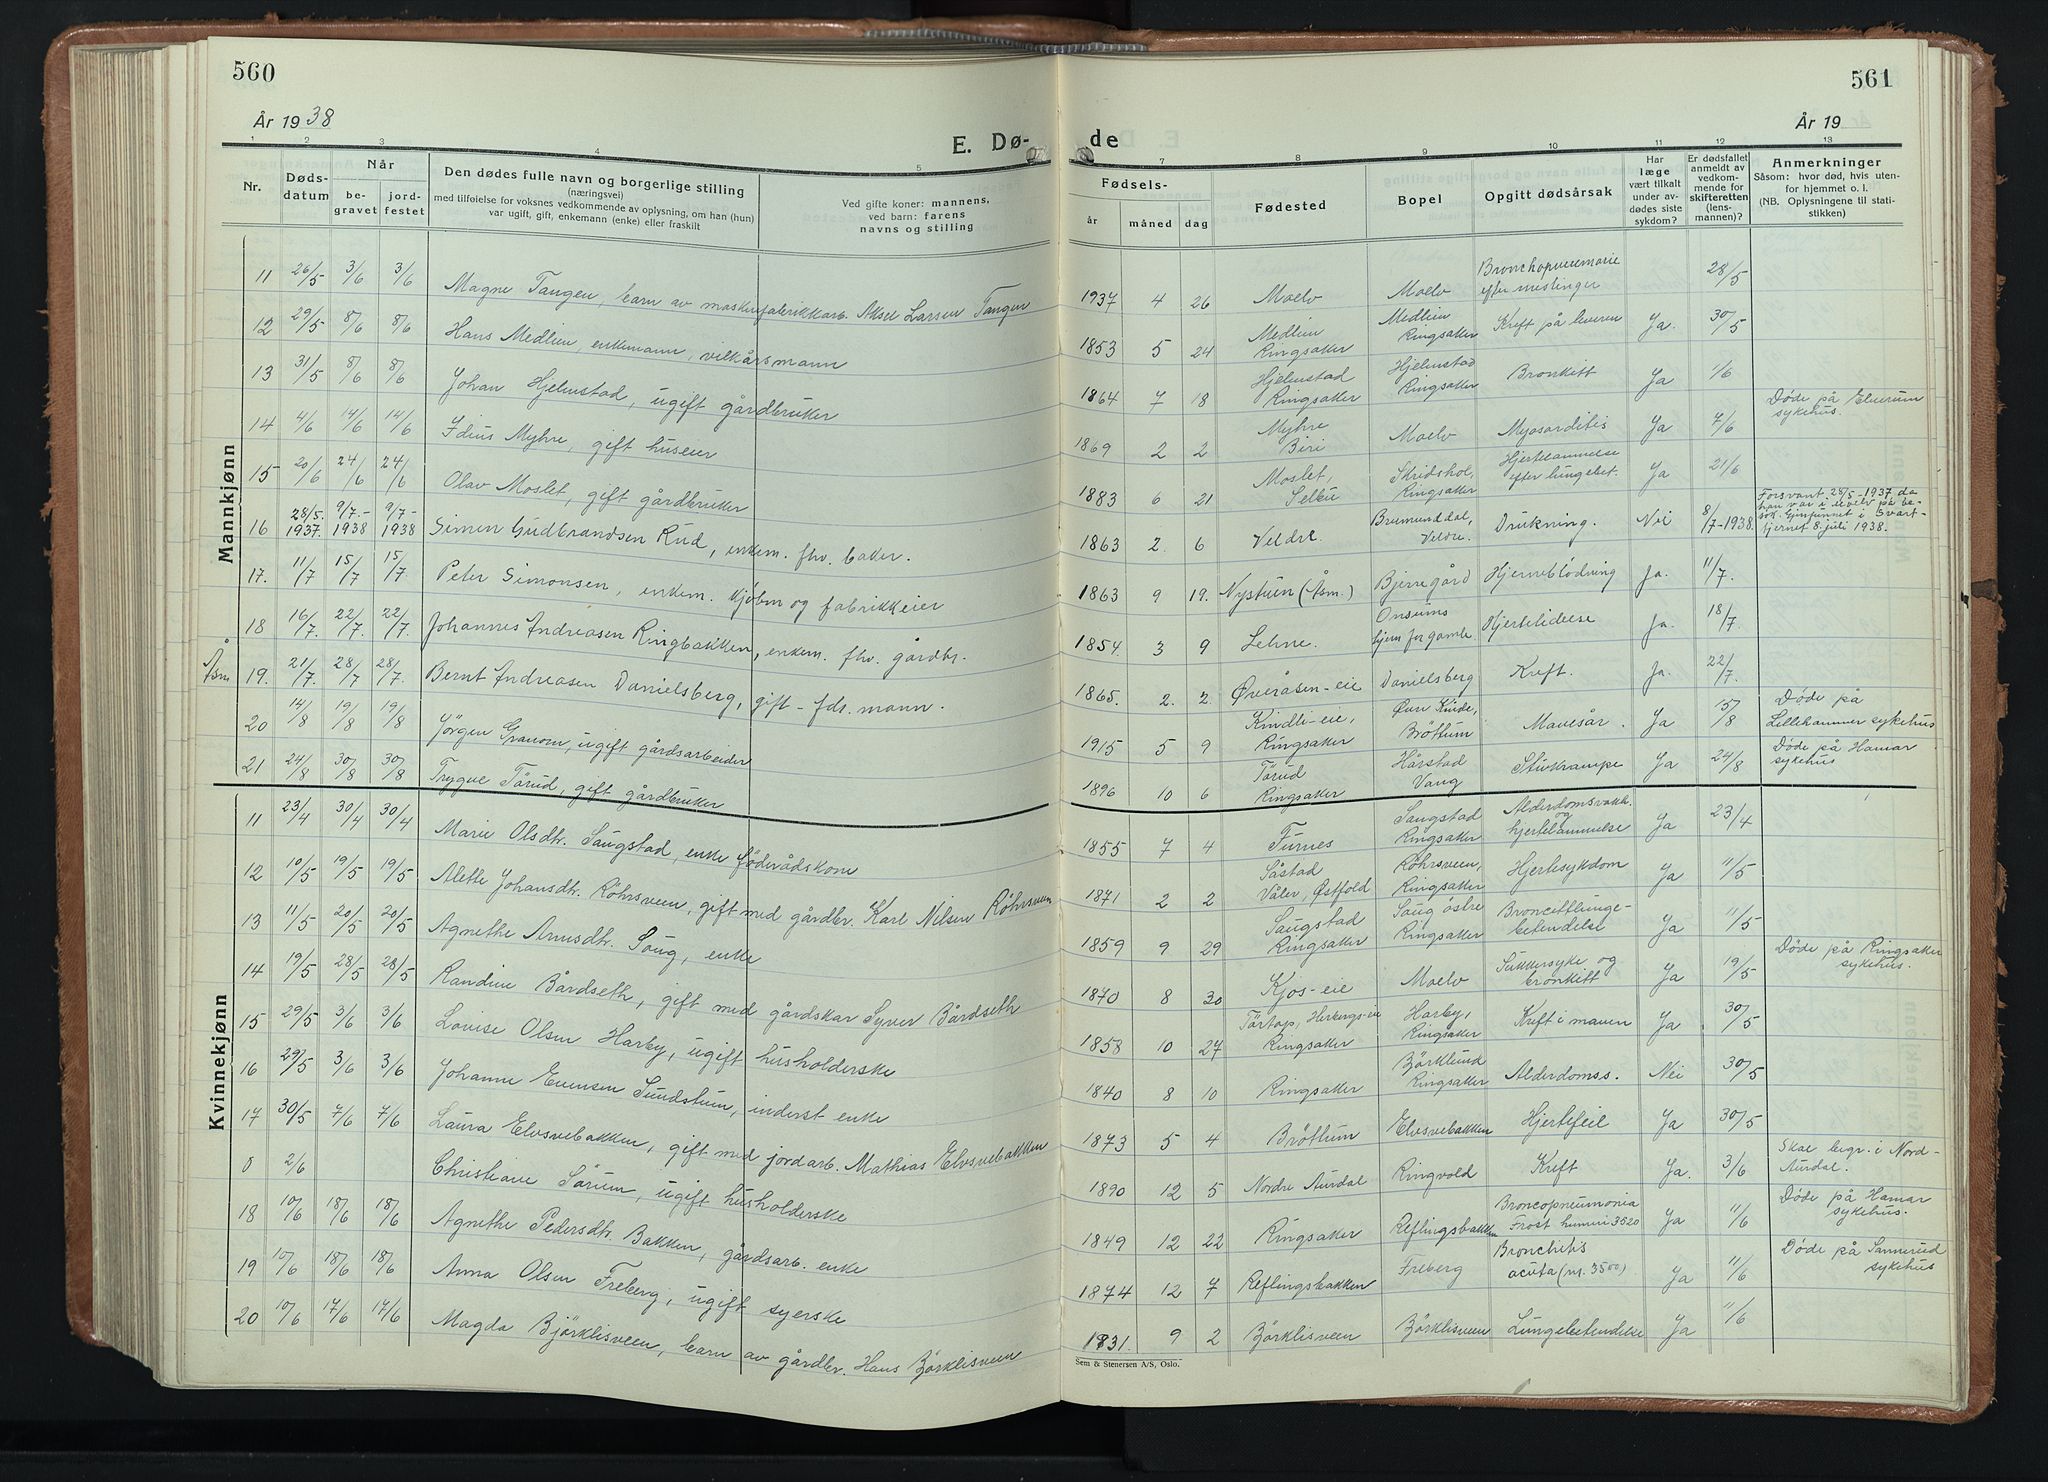 560
År 1938
E. Dø-
1 2 3 4 5
Nr.
Døds-
datum
Når
be-
gravet
jord-
festet
Den dødes fulle navn og borgerlige stilling
(næringsvei)
med tilføielse for voksnes vedkommende av oplysning, om han (hun)
var ugift, gift, enkemann (enke) eller fraskilt
Ved gifte koner: mannens,
ved barn: farens
navns og stilling
Mannkjønn
11 26/5 3/6 3/6 Magne Tangen, barn av maskinfabrikkarb. Aksel Larsen Tangen
12 29/5 8/6 8/6 Hans Medlien, enkemann, vilkårsmann
13 31/5 8/6 8/6 Johan Hjelmstad, ugift gårdbruker
14 4/6 14/6 14/6 Idius Myhre, gift huseier
15 20/6 24/6 24/6 Olav Moslet, gift gårdbruker
16 28/5. 1937. 9/7.- 1938 9/7- 1938 Simen Gudbrandsen Rud, enkem. fhv. baker.
17. 11/7 15/7 15/7 Peter Simonsen, enkem. kjöbm og fabrikkeier
18 16/7. 22/7. 22/7. Johannes Andreasen Ringbakken, enkem. fhv. gårdbr.
Åsm 19. 21/7. 28/7 28/7. Bernt Andreasen Danielsberg, gift - fds. mann.
20 14/8 19/8 19/8 Jörgen Granom, ugift gårdsarbeider
21 24/8 30/8 30/8 Trygve Törud, gift gårdbruker
Kvinnekjønn
11 23/4 30/4 30/4 Marie Olsdtr. Saugstad, enke föderådskone
12 10/5 19/5 19/5 Alette Johansdtr. Röhrsveen, gift med gårdbr. Karl Nilsen Röhrsveen
13 11/5 20/5 20/5 Agnethe Arnesdtr. Saug, enke
14 19/5 28/5 28/5 Randine Bårdseth, gift med gårdskar Syver Bårdseth
15 29/5 3/6 3/6 Louise Olsen Harby, ugift husholderske
16 29/5 3/6 3/6 Johanne Evensen Sundstum, inderst enke
17 30/5 7/6 7/6 Laura Elvsvebakken, gift med jordarb. Mathias Elvsvebakken
0 2/6 Christiane Sörum, ugift husholderske
18 10/6 18/6 18/6 Agnethe Pedersdtr. Bakken, gårdsarb. enke
19 10/6 18/6 18/6 Anna Olsen Freberg, ugift syerske
20 10/6 17/6 17/6 Magda Björklisveen, barn av gårdbr. Hans Björklisveen
561
År 19
de
7 8 9 10 11 12 13
Fødsels-
år måned dag
Fødested
Bopel
Opgitt dødsårsak
Har
læge
vært tilkalt
under av-
dødes siste
sykdom?
Er dødsfallet
anmeldt av
vedkom-
mende for
skifteretten
(lens-
mannen)?
Anmerkninger
Såsom: hvor død, hvis uten-
for hjemmet o. l.
(NB. Oplysningene til stati-
stikken)
1937 4 26 Moelv Moelv Bronchopneumonie efter meslinger 28/5
1853 5 24 Medlien Ringsaker Medlien Ringsaker Kreft på leveren Ja. 30/5
1864 7 18 Hjelmstad Ringsaker Hjelmstad Ringsaker Bronkitt Ja 1/6
1869 2 2 Myhre Biri Moelv Myocarditis Ja 7/6 Døde på Elverum sykehus.
1883 6 21 Moslet, Selbu Skridshol, Ringsaker Hjertelammelse efter lungebet. Ja 21/6
1863 2. 6 Veldre. Brumunddal, Veldre. Drukning. Nei 8/7-1938. Forsvant 28/5-1937 da han var i Moelv på besök. Gjenfunnet i Svartfjernet 8. juli 1938.
1863 9 19. Nystuen (Åsm.) Bjerregård Hjerneblödning Ja. 11/7.
1854. 3 9 Lehne. Onsums hjem for gamle Hjertelidelse Ja. 18/7.
1865. 2. 2. Øveråsen-eie Danielsberg Kreft. Ja. 22/7.
1915 5 9 Kindli-eie, Ringsaker Øvre Kinde, Bröttum Mavesår. Ja 15/8 Døde på Lillehammer sykehus
1896 10 6 Törud Ringsaker Hårstad Vang Stivkrampe Ja 24/8 Døde på Hamar sykehus
1855 7 4 Furnes Saugstad Ringsaker Alderdomsvakh. og hjertelammelse Ja 23/4
1871 2 2 Såstad Våler, Østfold Röhrsveen, Ringsaker Hjertesykdom Ja 11/5
1859 9 29 Saugstad Ringsaker Saug östre Ringsaker Broncittlunge-betendelse Ja 11/5
1870 8 30 Kjos-eie Moelv Sukkersyke og bronkitt Ja 19/5 Døde på Ringsaker sykehus.
1858 10 27 Törtop, Herbergs-eie Ringsaker Harby, Ringsaker Kreft i maven Ja 30/5
1840 8 10 Ringsaker Björklund Ringsaker Alderdomss. Nei 30/5
1873 5 4 Bröttum Elvsvebakken Hjertefeil Ja 30/5
1890 12 5 Nordre Aurdal Ringvold Kreft Ja. 3/6 Skal begr. i Nord-Aurdal.
1849 12 22 Ringsaker Reflingsbakken Broncopneumonia Frost humeri 3520 Ja 11/6 Døde på Hamar sykehus.
1874 12 7 Reflingsbakken Freberg Bronchitis acuta (nr. 3500) Ja 11/6 Døde på Sannerud sykehus
1931. 9 2 Björklisveen Björklisveen Lungebetendelse Ja 11/6
Sem & Stenersen A/S, Oslo.